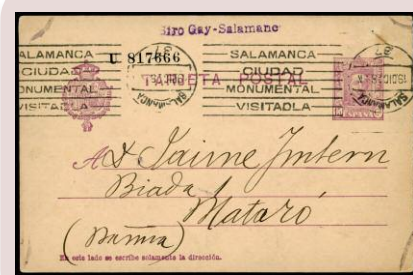 Siro Gay-Salamanc
SALAMANCA
CIUDAD
MONUMENTAL
VISITADLA
U 817666
TARJETA POSTAL
SALAMANCA
SALAMANCA
CIUDAD
MONUMENTAL
VISITADLA
SALAMANCA
ESPAÑA
A D. Jaime Intern
Biada
Mataró
En este lado se escribe solamente la dirección.